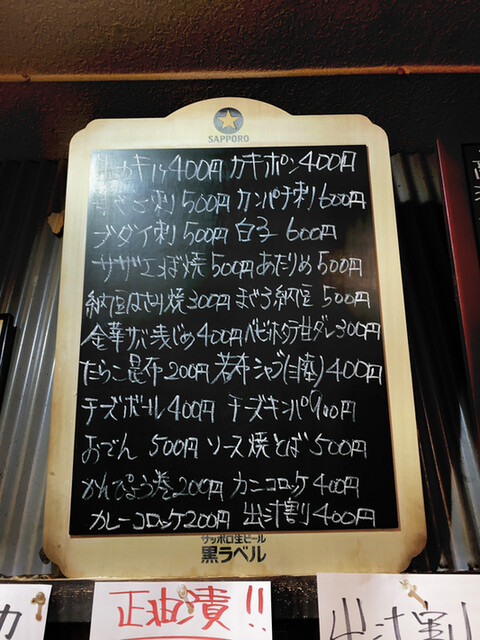 SAPPORO
400円 カキポン 400円
刺 500円 カンパチ刺 600円
ブダイ刺 500円 白子 600円
サザエつぼ焼 500円 あたりめ 500円
納豆はさみ焼 300円 まぐろ納豆 500円
金華サバ浅じめ 400円 ベビーホタテ甘ダレ 300円
たらこ昆布 200円 若布シャブ 400円
チーズボール 400円 チーズキンパ 900円
おでん 500円 ソース焼そば 500円
かんぴょう巻 200円 カニコロッケ 400円
カレーコロッケ 200円 出汁割 400円
サッポロ生ビール
黒ラベル
正油漬!!
出汁割